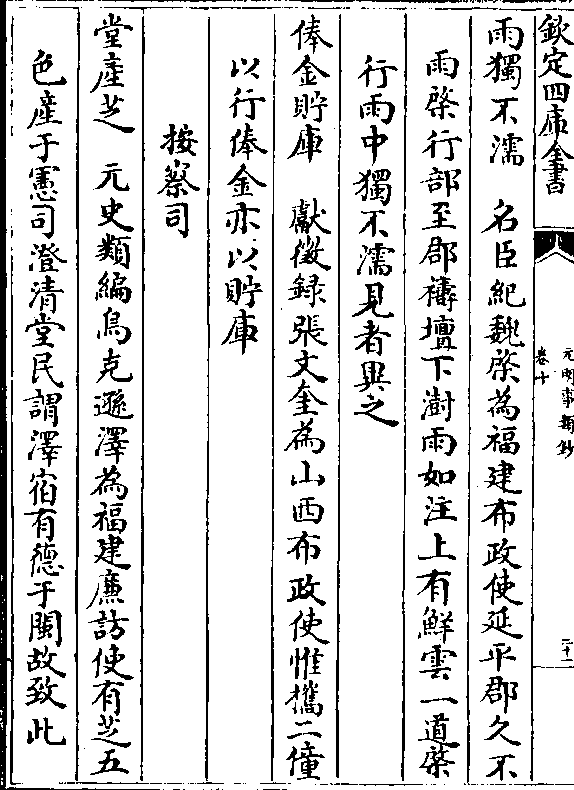 欽定四庫全書
元明事類鈔
卷十
三十一
雨獨不濡　名臣紀魏棨為福建布政使延平郡久不
雨棨行部至郡禱壇下澍雨如注上有鮮雲一道棨
行雨中獨不濡見者異之
俸金貯庫　獻徵録張文奎為山西布政使惟攜二僮
以行俸金亦以貯庫
按察司
堂產芝　元史類編烏克遜澤為福建廉訪使有芝五
色產于憲司澄清堂民謂澤宿有德于閩故致此